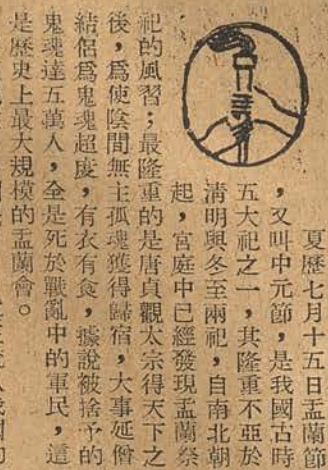 夏歷七月十五日盂蘭節
,又叫中元節,是我國古時
五大祀之一,其隆重不亞於
清明與冬至兩祀,自南北朝
起,宮庭中已經發現盂蘭祭
祀的風習;最隆重的是唐貞觀太宗得天下之
後,爲使陰間無主孤魂獲得歸宿,大事延僧
結侶爲鬼魂超度,有衣有食,據說被捨予的
鬼魂達五萬人,全是死於戰亂中的軍民,這
是歷史上最大規模的盂蘭會。